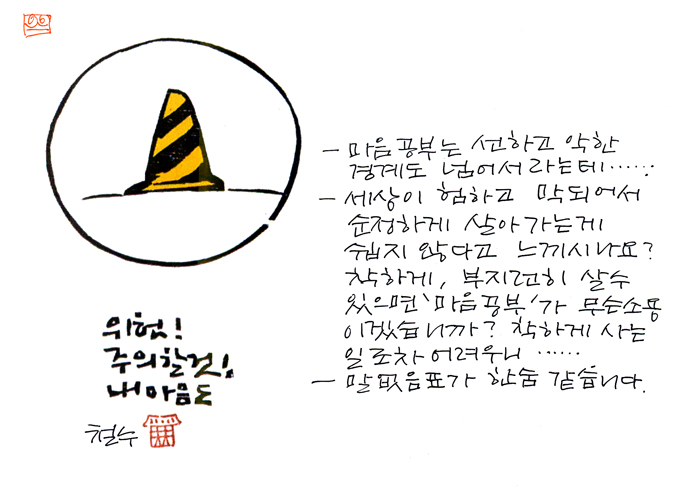 위험!
주의할것!
내마음도
철수
- 마음공부는 선하고 악한
경계도 넘어서라는데‥‥‥
- 세상이 험하고 막되어서
순정하게 살아가는게
쉽지 않다고 느끼시나요?
착하게, 부지런히 살수
있으면 '마음공부'가 무슨소용
이겠습니까? 착하게 사는
일조차 어려우니 ‥‥‥
- 말없음표가 한숨 같습니다.